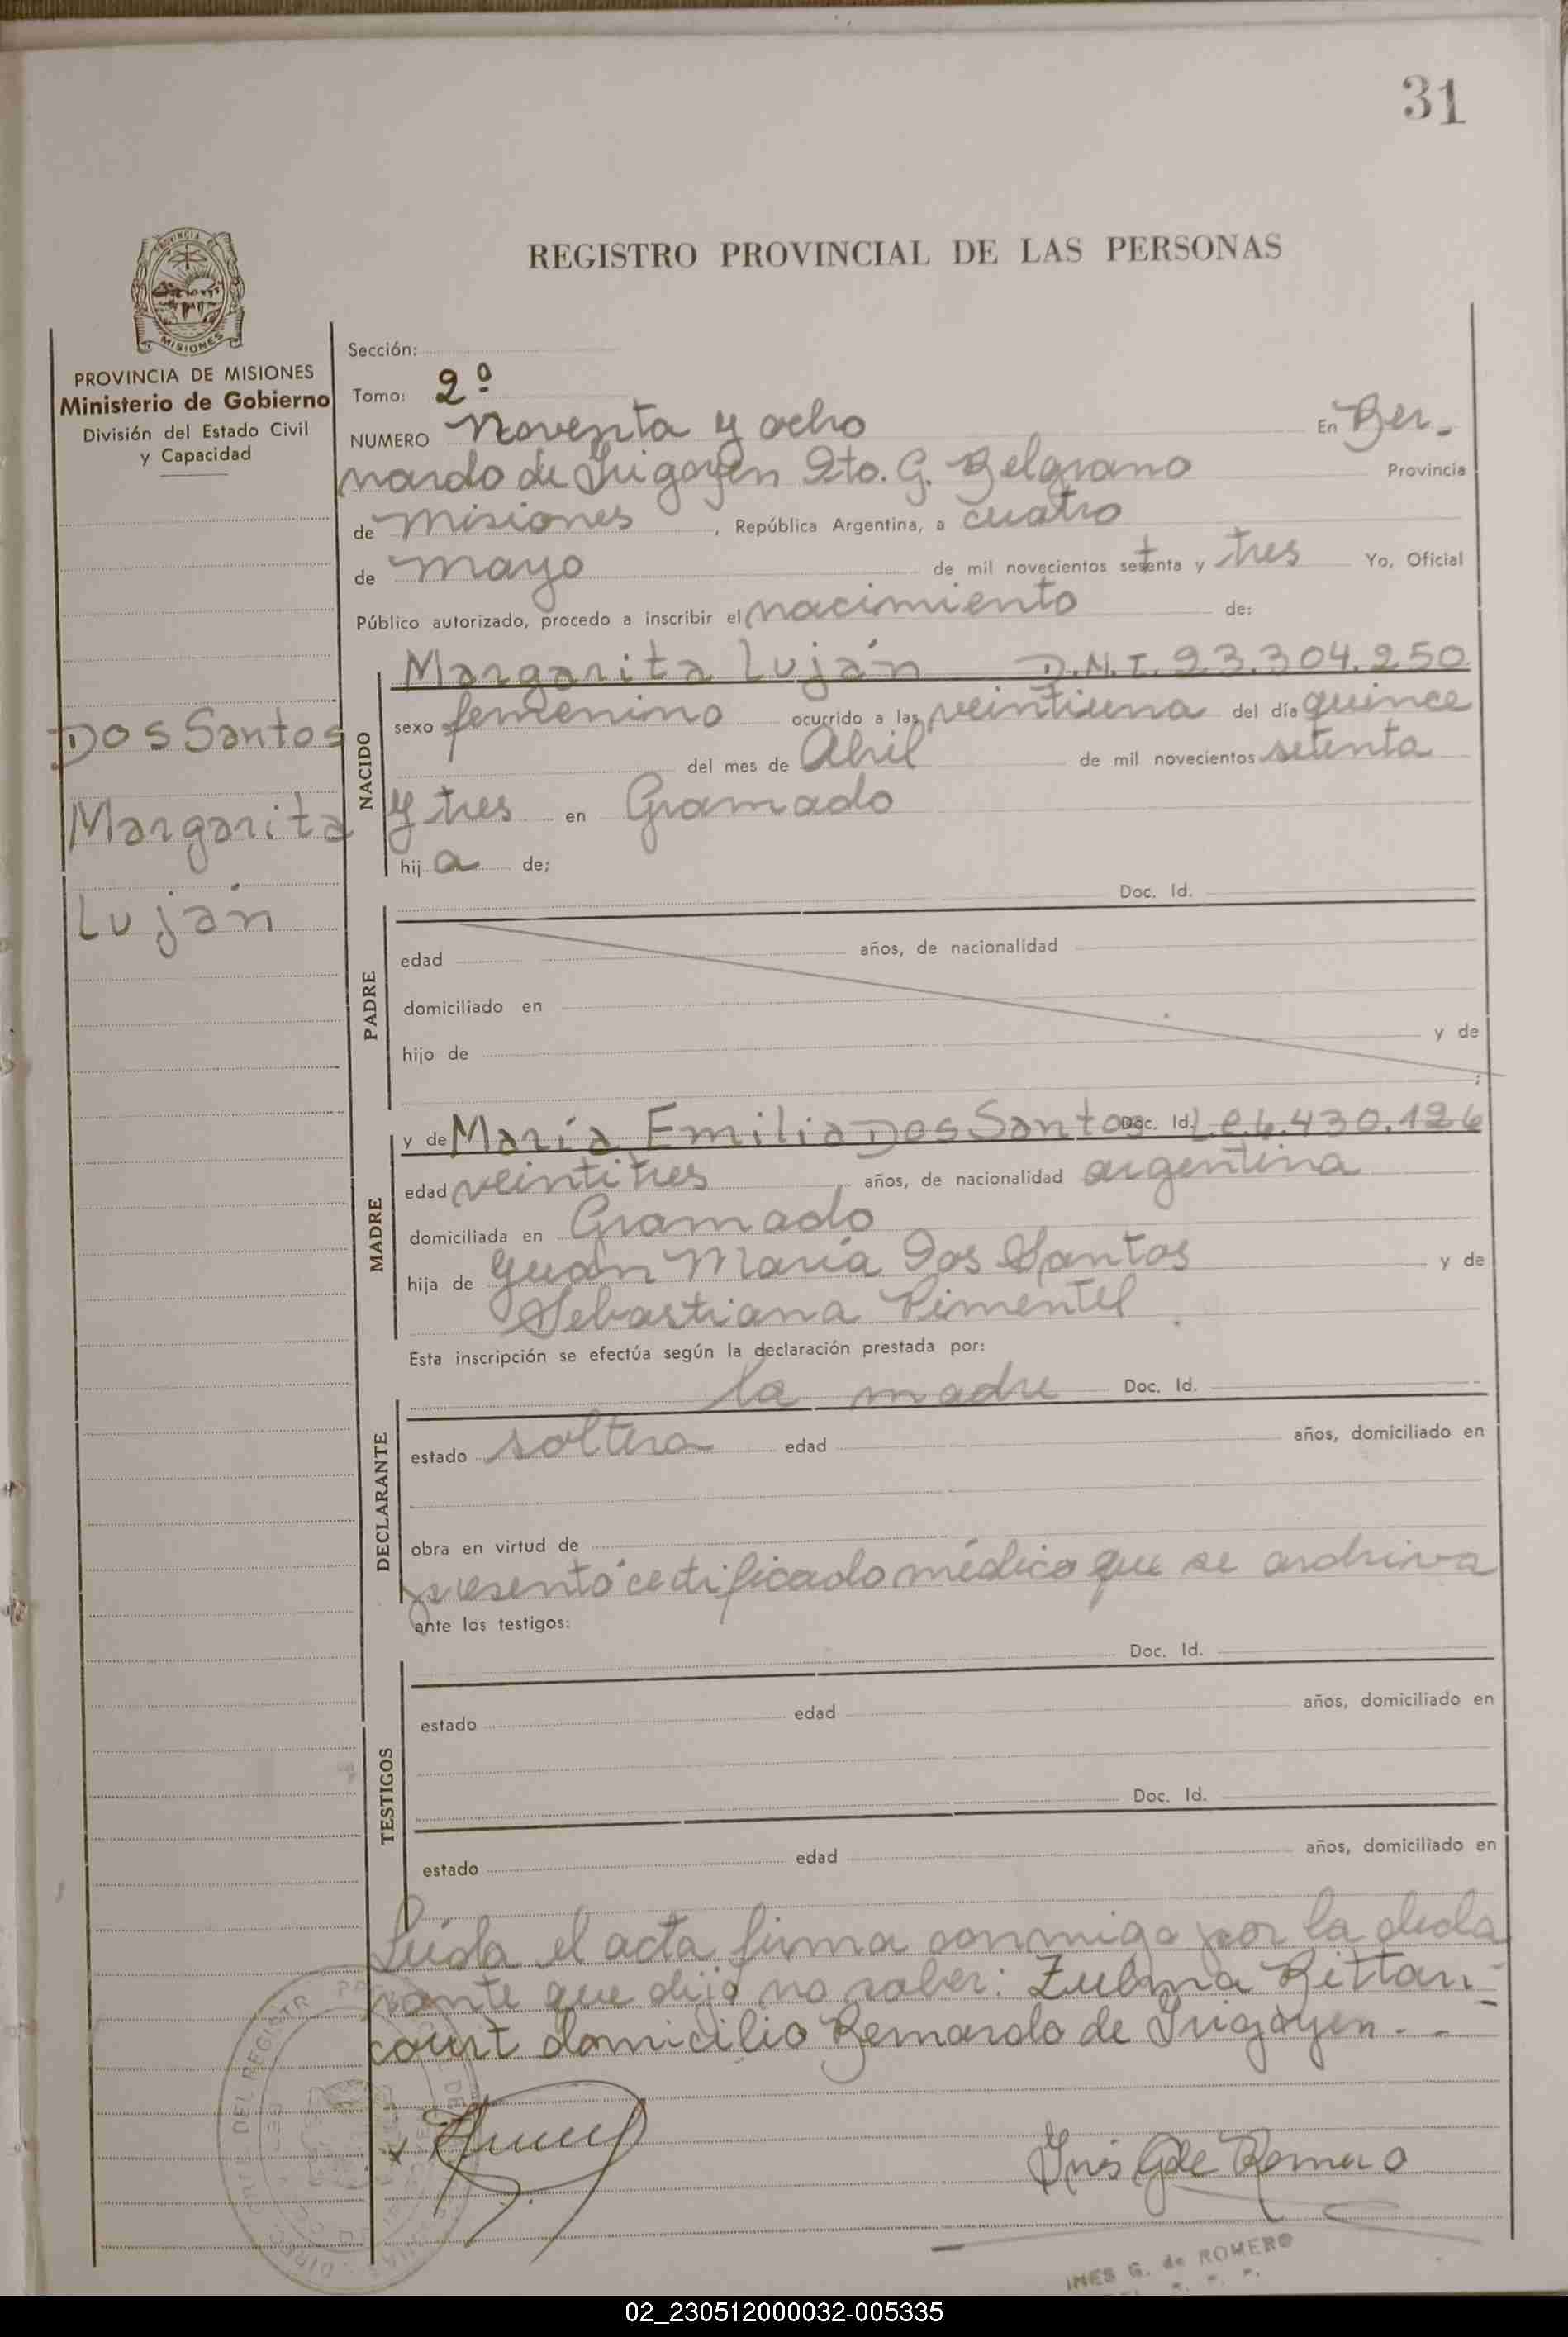 31
REGISTRO PROVINCIAL DE LAS PERSONAS
PROVINCIA DE
MISIONES
PROVINCIA DE MISIONES
Ministerio de Gobierno
División del Estado Civil
y Capacidad
Dos Santos
Margarita
Luján
Sección:
Tomo: 2º
NUMERO Noventa y ocho En Ber-
nardo de Irigoyen Dto. G. Belgrano Provincia
de Misiones, República Argentina, a cuatro
de mayo de mil novecientos setenta y tres Yo, Oficial
Público autorizado, procedo a inscribir el nacimiento de:
NACIDO
Margarita Luján D.N.I. 23.304.250
sexo femenino ocurrido a las veintiuna del día quince
del mes de Abril de mil novecientos setenta
y tres en Gramado
hij a de;
PADRE
Doc. Id.
edad años, de nacionalidad
domiciliado en
hijo de y de
;
MADRE
y de María Emilia Dos Santos Doc. Id. L.C. 6.430.126
edad veintitres años, de nacionalidad argentina
domiciliada en Gramado
hija de Juan María Dos Santos y de
Sebastiana Pimentel
Esta inscripción se efectúa según la declaración prestada por:
DECLARANTE
la madre Doc. Id.
estado soltera edad años, domiciliado en
obra en virtud de
presentó certificado médico que se archiva
ante los testigos:
TESTIGOS
Doc. Id.
estado edad años, domiciliado en
Doc. Id.
estado edad años, domiciliado en
Leída el acta firma conmigo por la decla
rante que dijo no saber: Zulma Bittan-
court domicilio Bernardo de Irigoyen.--
Inés G de Romero
INES G. de ROMERO
02_230512000032-005335